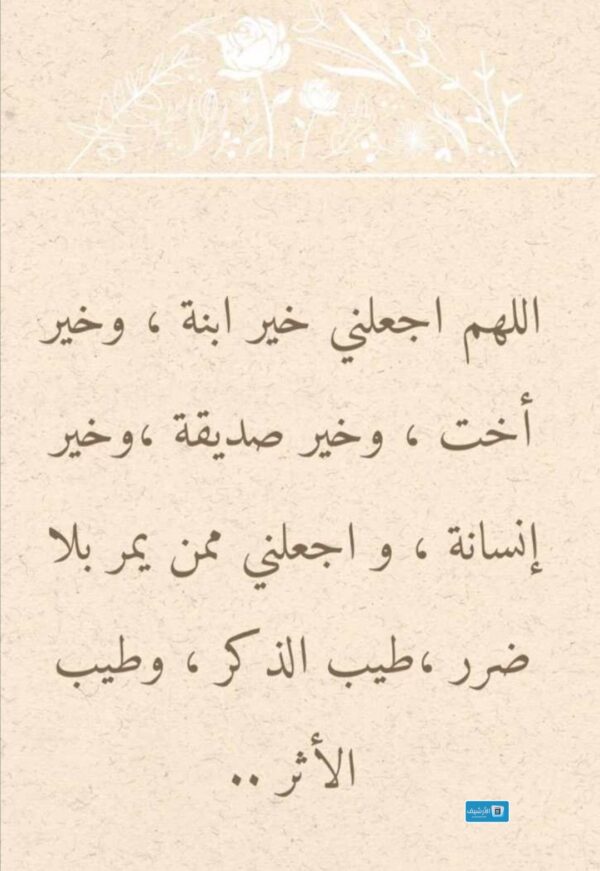 اللهم اجعلني خير ابنة ، وخير
أخت ، وخير صديقة ،وخير
إنسانة ، و اجعلني ممن يمر بلا
ضرر ،طيب الذكر ، وطيب
الأثر ..
الأرشيف